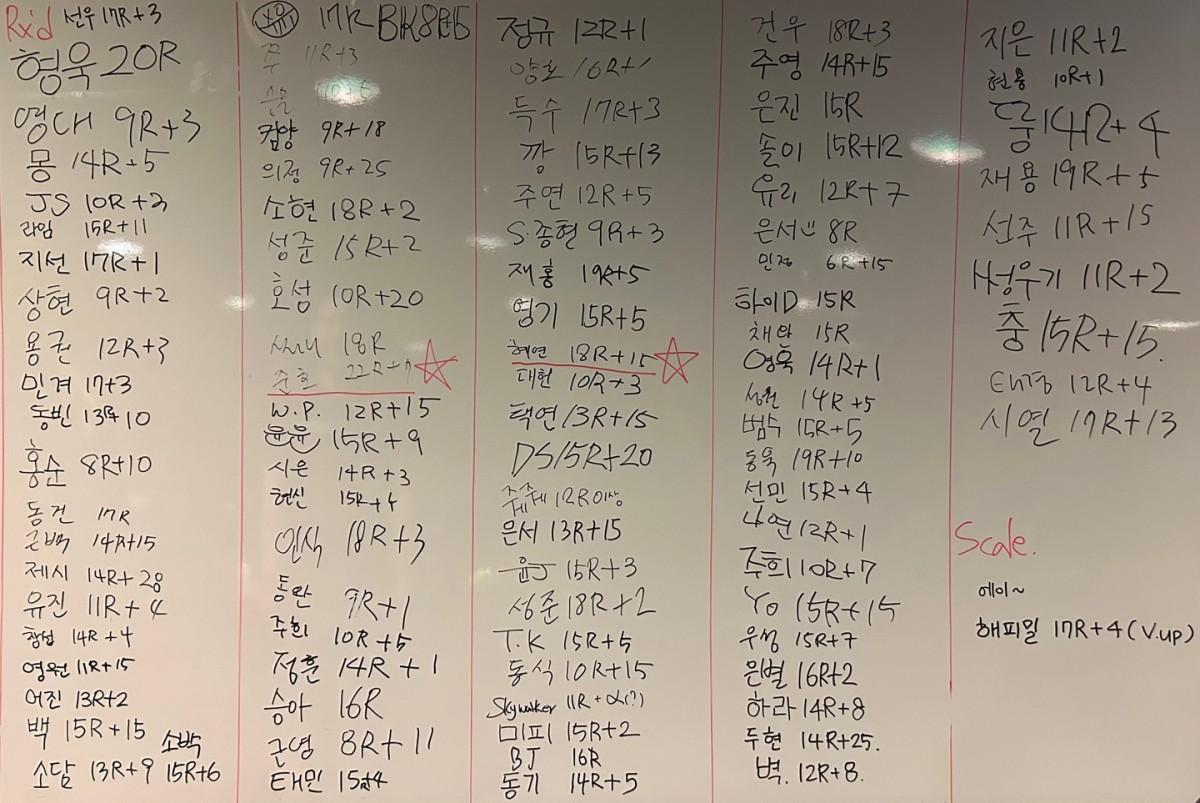 Rx'd 선우 17R+3
형욱 20R
영대 9R+3
몽 14R+5
JS 10R+3
라임 15R+11
지선 17R+1
상현 9R+2
용권 12R+3
민겨 17+3
동빈 13R+10
홍순 8R+10
동건 17R
근백 14R+15
제시 14R+28
유진 11R+4
창섭 14R+4
영원 11R+15
어진 13R+2
백 15R+15
소백
소담 13R+9 15R+6
17R
11R+3
컴양 9R+18
의정 9R+25
소현 18R+2
성준 15R+2
호섬 10R+20
18R
순호
W.P. 12R+15
윤윤 15R+9
시은 14R+3
현신 15R+4
인식 18R+3
동완 9R+1
주희 10R+5
정훈 14R+1
승아 16R
근영 8R+11
태민 15R+4
정규 12R+1
양호 16R+1
득수 17R+3
깡 15R+13
주연 12R+5
S.종현 9R+3
재홍 19R+5
영기 15R+5
혜연 18R+15
대헌 10R+3
택연 13R+15
DS 15R+20
12R이상
은서 13R+15
윤J 15R+3
성준 18R+2
T.K 15R+5
동식 10R+15
Skywalker 11R+α(?)
미피 15R+2
BJ 16R
동기 14R+5
건우 18R+3
주영 14R+15
은진 15R
솔이 15R+12
유리 12R+7
은서 8R
민정 6R+15
하이D 15R
채안 15R
영욱 14R+1
성원 14R+5
범수 15R+5
동욱 19R+10
선민 15R+4
나연 12R+1
주희 10R+7
YO 15R+15
우성 15R+7
은별 16R+2
하라 14R+8
두현 14R+25.
벽. 12R+8.
지은 11R+2
현용 10R+1
둥 14R+4
재용 19R+5
선주 11R+15
H성우기 11R+2
충 15R+15.
태경 12R+4
시열 17R+13
Scale.
에이~
해피밀 17R+4 (V.up)